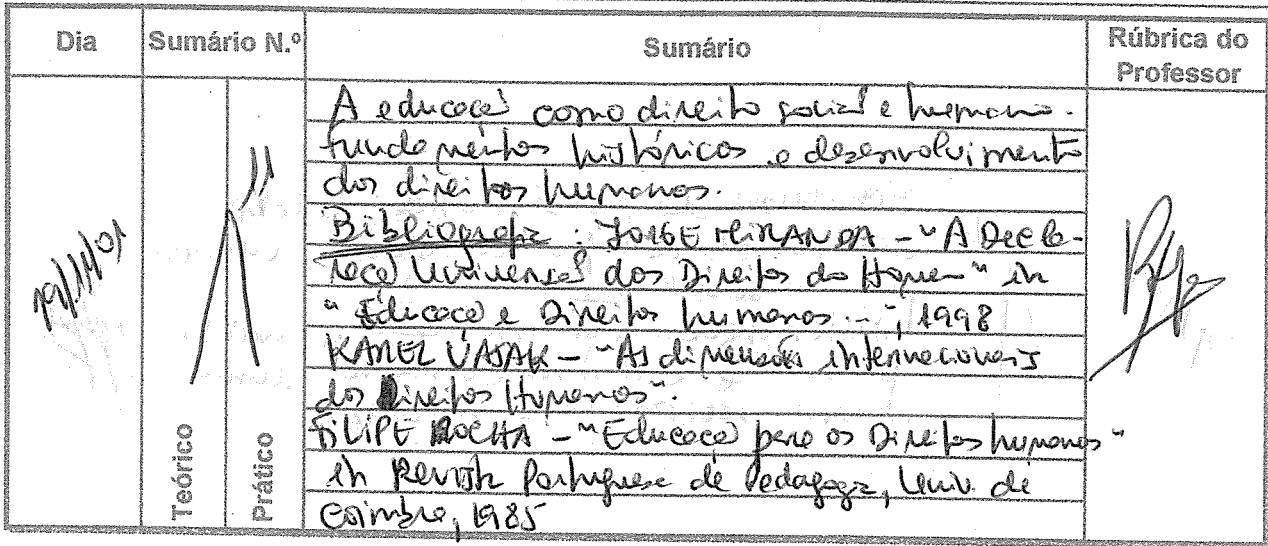 Dia Sumário N.º Sumário Rúbrica do Professor
Teórico Prático
A educação como direito social e humano.
Fundamentos históricos e desenvolvimento
dos direitos humanos.
Bibliografia: JORGE MIRANDA - "A Decla-
ração Universal dos Direitos do Homem" in
"Educação e Direitos humanos...", 1998
KAREL VASAK - "As dimensões internacionais
dos Direitos Humanos".
FILIPE ROCHA - "Educação para os Direitos humanos"
in Revista Portuguesa de Pedagogia, Univ. de
Coimbra, 1985